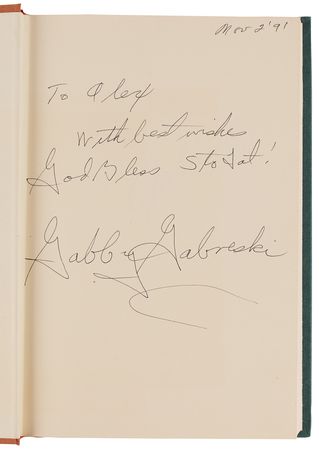 Nov 2 '91
To Alex
With best wishes
God Bless Sto Lat!
Gabby Gabreski